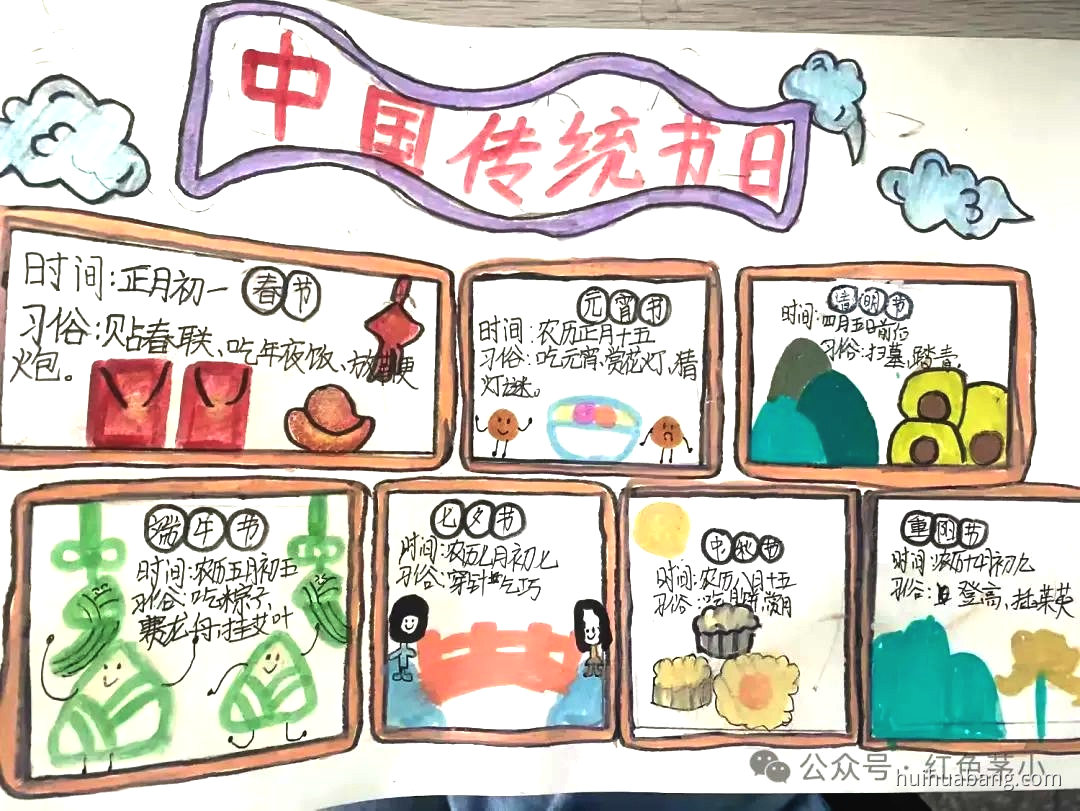 中国传统节日
春节
时间:正月初一
习俗:贴春联、吃年夜饭、放
火包。
元宵节
时间:农历正月十五
习俗:吃元宵、赏花灯、猜
灯谜。
清明节
时间:四月五日前后
习俗:扫墓、踏青。
端午节
时间:农历五月初五
习俗:吃粽子、
赛龙舟、挂艾叶
七夕节
时间:农历七月初七
习俗:穿针吃巧
中秋节
时间:农历八月十五
习俗:吃月饼、赏月
重阳节
时间:农历九月初九
习俗:登高、插茱萸
公众号·红色茅小
huihuabang.com